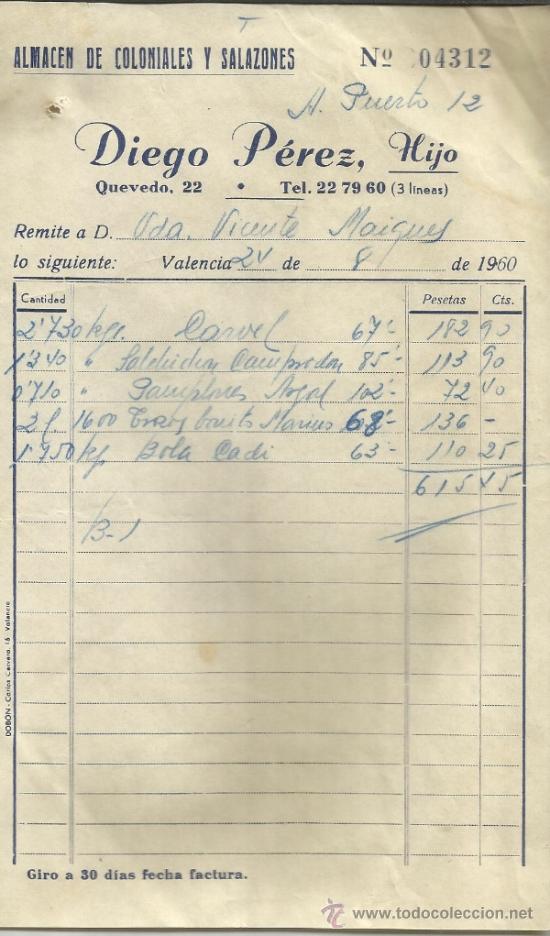 ALMACEN DE COLONIALES Y SALAZONES Nº 04312
A. Puerto 12
Diego Pérez, Hijo
Quevedo, 22 • Tel. 22 79 60 (3 líneas)
Remite a D. Vda. Vicente Maigues
lo siguiente: Valencia 24 de 8 de 1960
Cantidad Pesetas Cts.
2'730 kg. 67'- 182 90
1'340 " Salchichon Campredon 85'- 113 90
0'710 " Pamplones 102'- 72 40
2 l. 1600 bonito 68'- 136 -
1'750 kg Bola Cadi 63- 110 25
615 45
B-1
DOBÓN - Carlos Cervera, 16 Valencia
Giro a 30 días fecha factura.
todocoleccion
www.todocoleccion.net